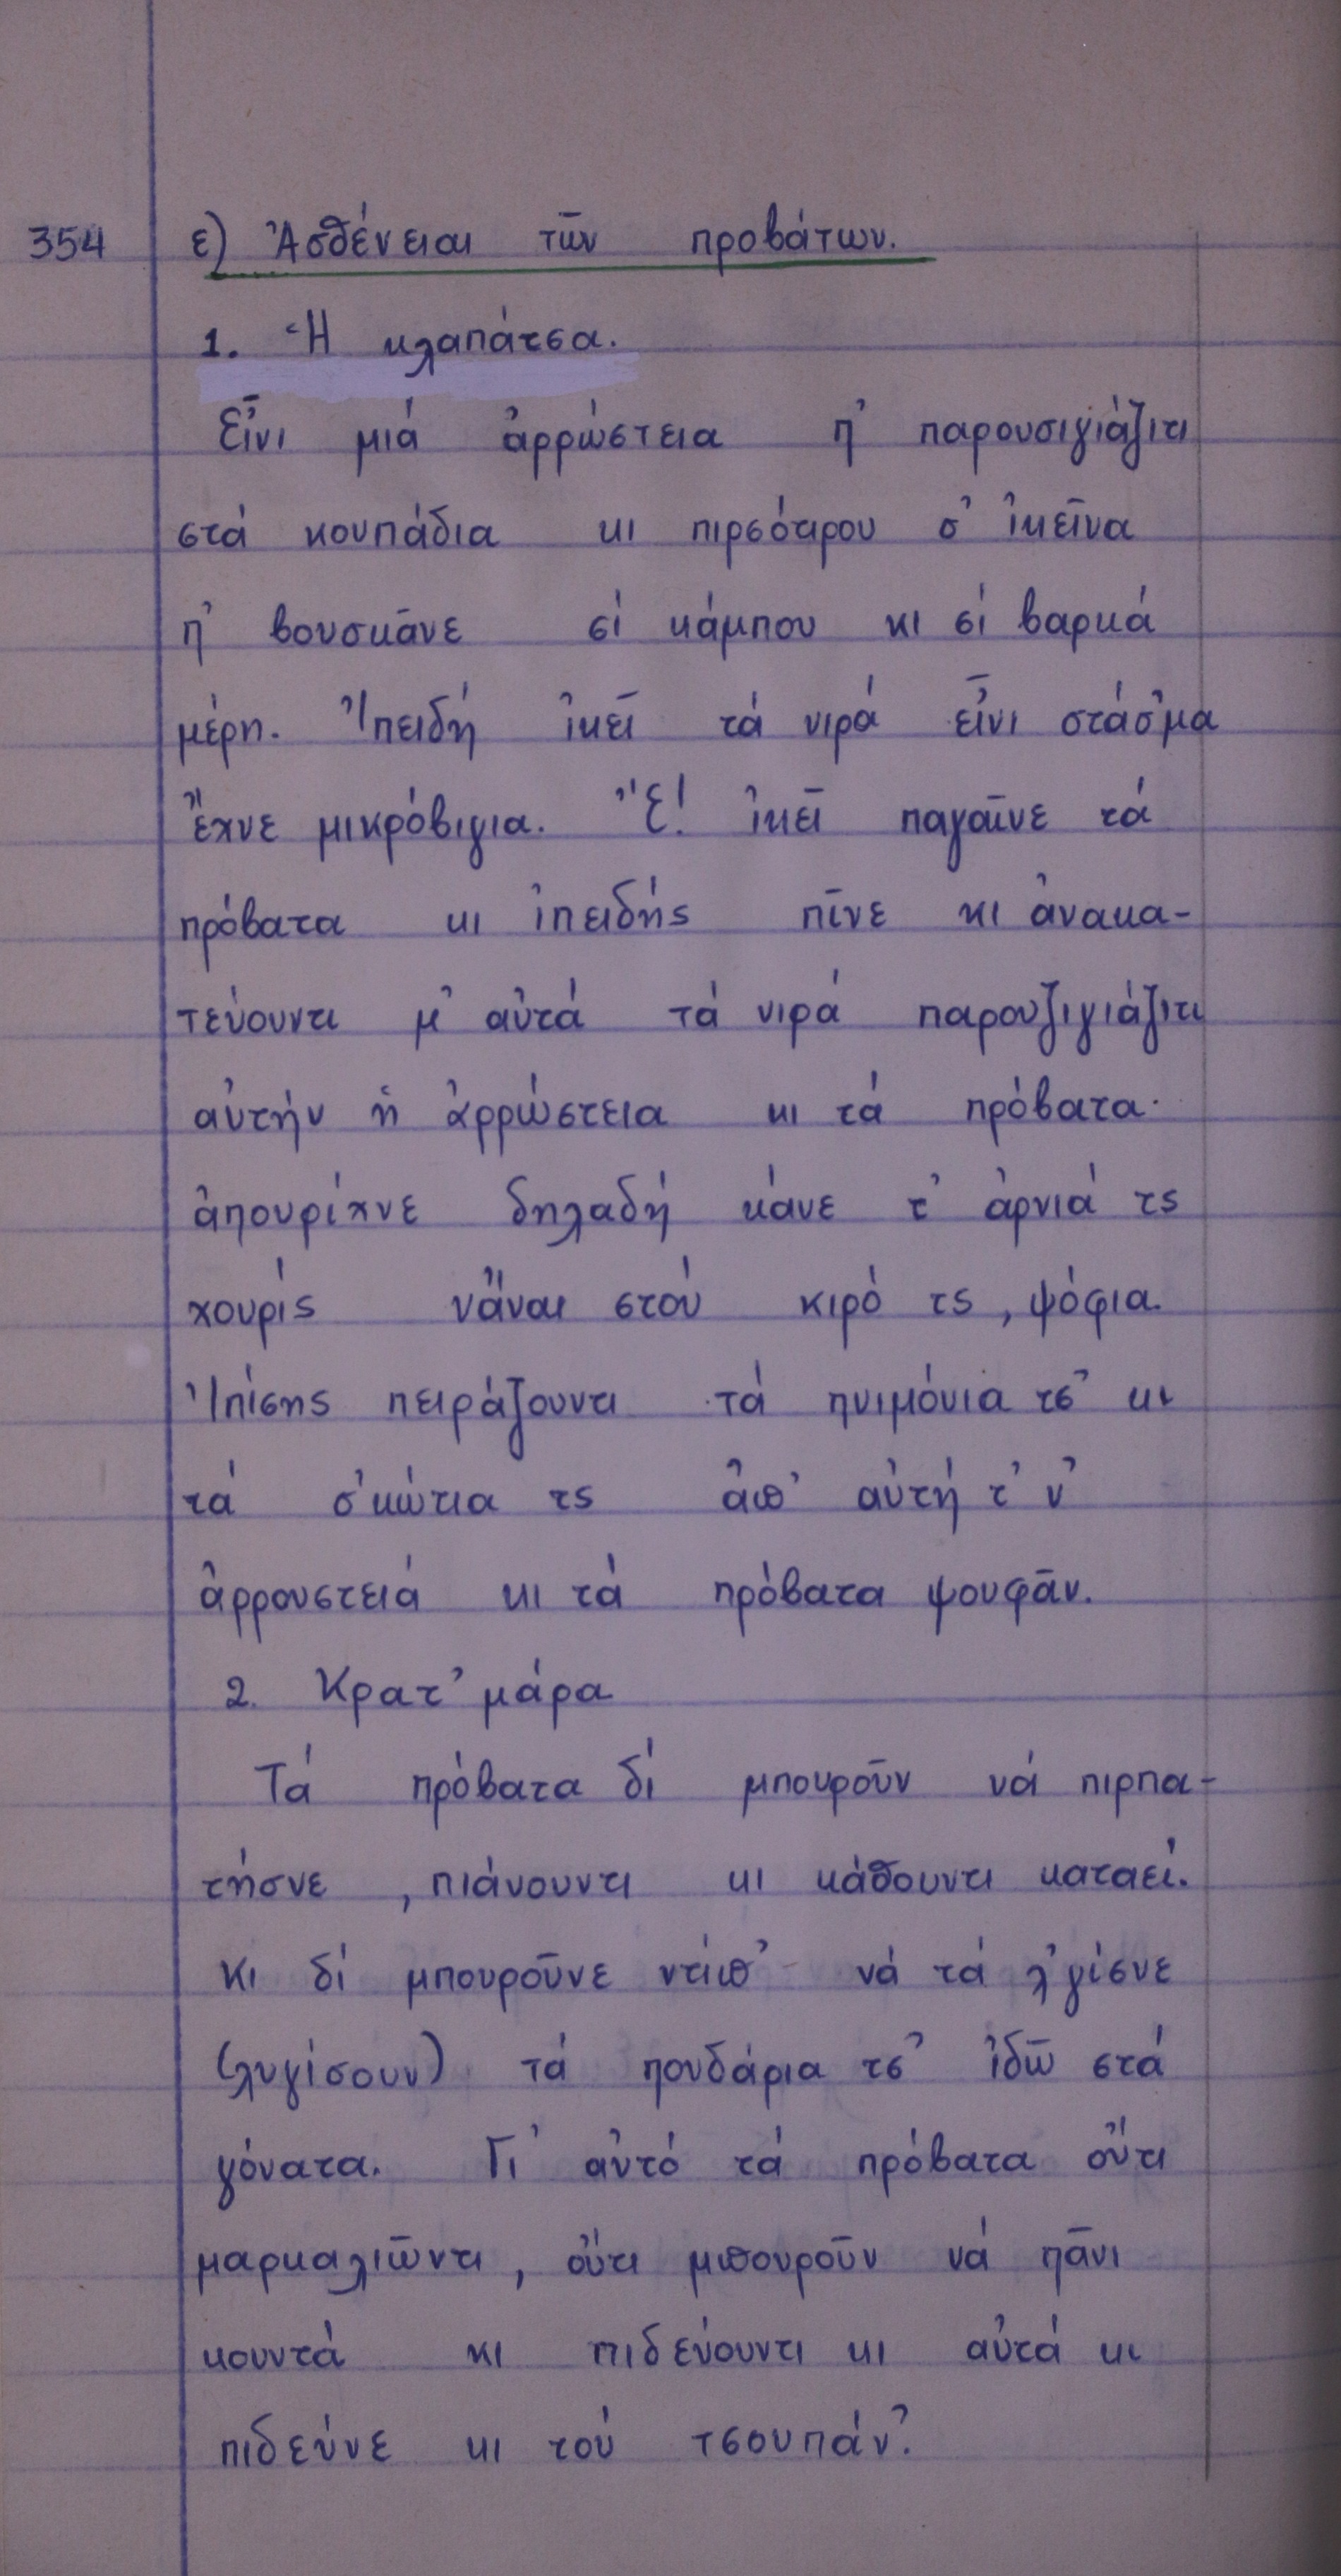 354 ε) Ἀσθένειαι τῶν προβάτων.
1. Ἡ κλαπάτσα.
Εἶνι μιά ἀρρώστεια π' παρουσιγιάζιτι
στά κουπάδια κι πιρσότιρου σ' ἰκεῖνα
π' βουσκᾶνε σί κάμπου κι σί βαρκά
μέρη. Ἰπειδή ἰκεῖ τά νιρά εἶνι στάσ'μα
ἔχνε μικρόβιγια. Ἔ! ἰκεῖ παγαῖνε τά
πρόβατα κι ἰπειδής πῖνε κι ἀνακα-
τεύουντι μ' αὐτά τά νιρά παρουζιγιάζιτι
αὐτήν ἡ ἀρρώστεια κι τά πρόβατα
ἀπουρίχνε δηλαδή κάνε τ' ἀρνιά τς
χουρίς νἄναι στού κιρό τς, ψόφια.
Ἰπίσης πειράζουντι τά πνιμόνια τσ' κι
τά σ'κώτια τς ἀπ' αὐτή τ' ν'
ἀρρουστειά κι τά πρόβατα ψουφᾶν.
2. Κρατ' μάρα
Τά πρόβατα δί μπουροῦν νά πιρπα-
τήσνε, πιάνουντι κι κάθουντι καταεί.
Κι δί μπουροῦνε ντίπ' νά τά λ'γίσνε
(λυγίσουν) τά πουδάρια τσ' ἰδῶ στά
γόνατα. Γι' αὐτό τά πρόβατα οὔτι
μαρκαλιῶντι, οὔτι μπουροῦν νά πᾶνι
κουντά κι πιδεύουντι κι αὐτά κι
πιδεύνε κι τού τσουπάν'.